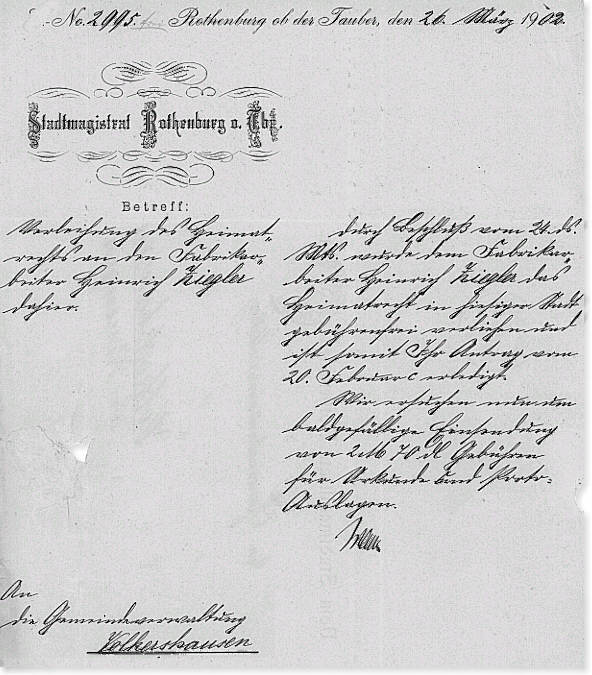 No. 2995. Rothenburg ob der Tauber, den 26. März 1902.
Stadtmagistrat Rothenburg o. Tbr.
Betreff:
Verleihung des Heimat-
rechts an den Fabrikar-
beiter Heinrich Ziegler
dahier.
Durch Beschluß vom 24. ds.
Mts. wurde dem Fabrikar-
beiter Heinrich Ziegler das
Heimatrecht in hiesiger Stadt
gebührenfrei verliehen und
ist somit Ihr Antrag vom
20. Februar c erledigt.
Wir ersuchen nun um
baldgefällige Einsendung
von 2 M 70 dl Gebühren
für Urkunde und Porto-
Auslagen.
An
die Gemeindeverwaltung
Volkershausen